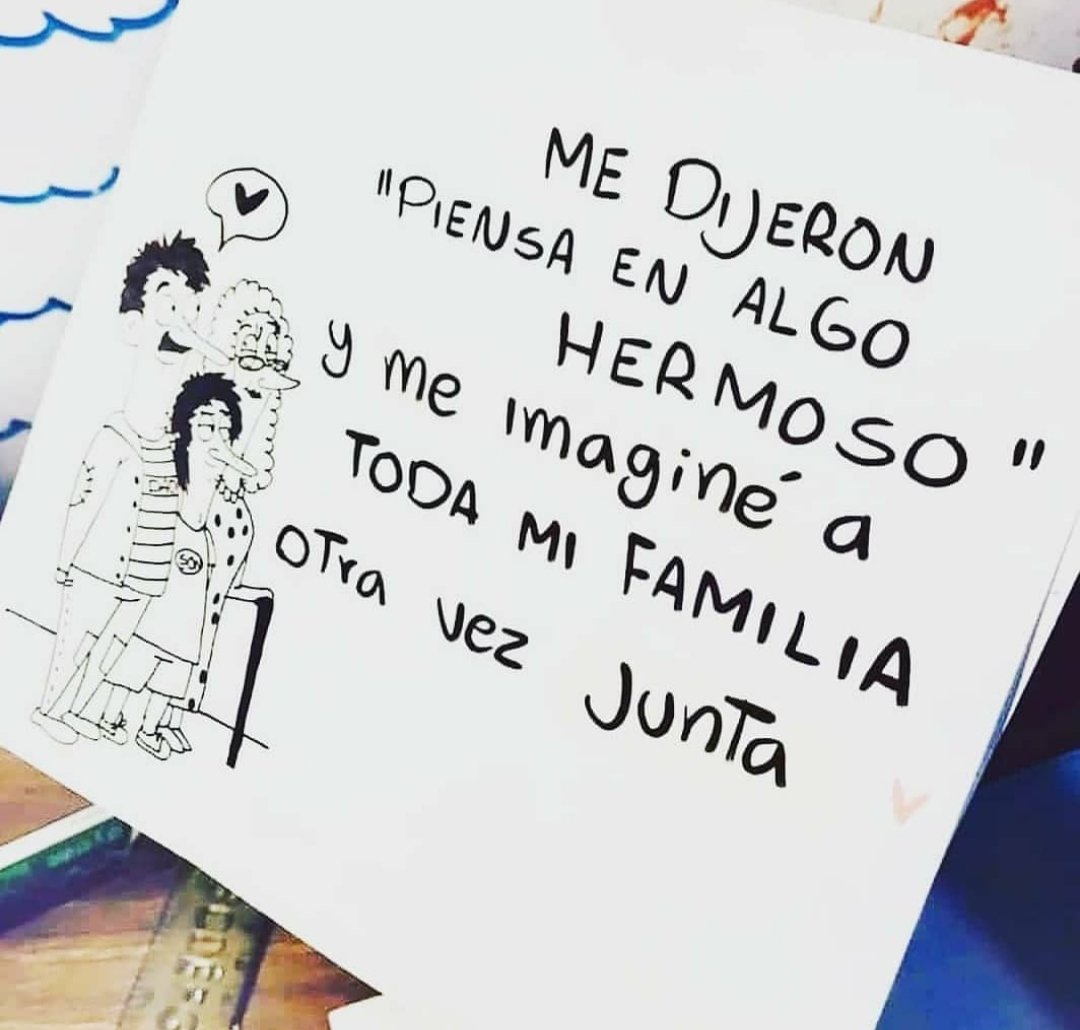 ME DIJERON
"PIENSA EN ALGO
HERMOSO"
y me imaginé a
TODA MI FAMILIA
OTra vez JunTa